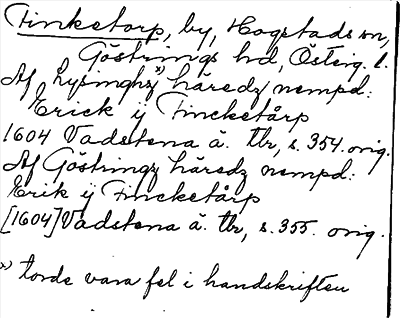 Finketorp, by, Hogstads sn,
Göstrings hd, Östrg. l.
Af Lysinghz x) häredz nempd:
Erick ij Fincketårp
1604 Vadstena ä. tbr, s. 354. orig.
Af Göstringz häredz nempd:
Erik ij Fincketårp
[1604] Vadstena ä. tbr, s. 355. orig.
x) torde vara fel i handskriften